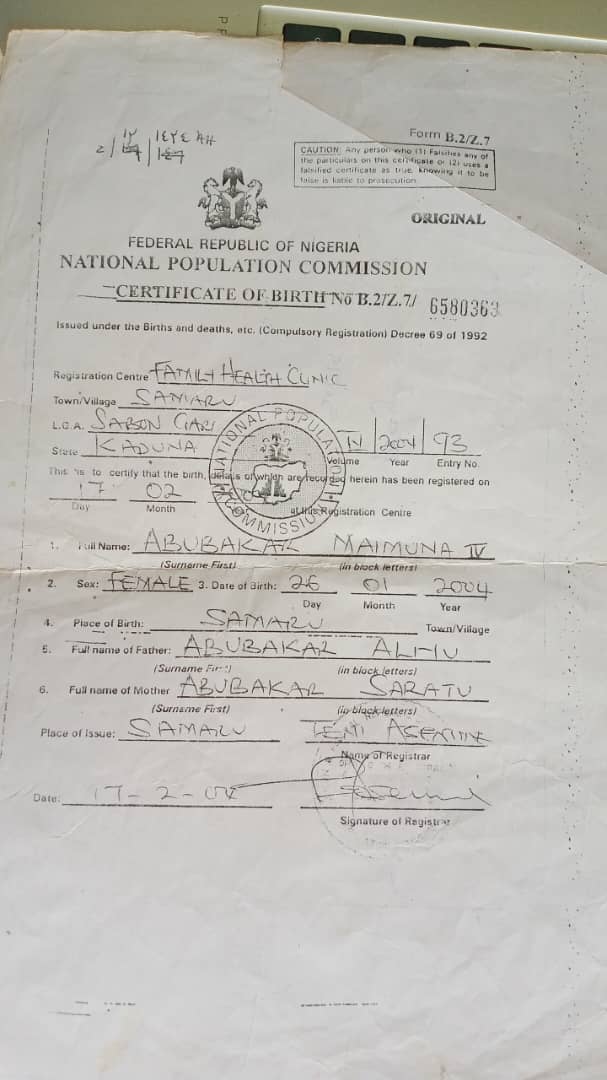 Form B.2/Z.7
2/12/1424 AH
CAUTION: Any person who (1) Falsifies any of
the particulars on this certificate or (2) uses a
falsified certificate as true, knowing it to be
false is liable to prosecution.
ORIGINAL
FEDERAL REPUBLIC OF NIGERIA
NATIONAL POPULATION COMMISSION
CERTIFICATE OF BIRTH No B.2/Z.7/ 6580363
Issued under the Births and deaths, etc. (Compulsory Registration) Decree 69 of 1992
Registration Centre FAMILY HEALTH CLINIC
Town/Village SAMARU
L.G.A. SABON GARI
State KADUNA
IV / 2004 / 93
Volume Year Entry No.
NATIONAL POPULATION COMMISSION
This is to certify that the birth, details of which are recorded herein has been registered on
17 02
Day Month at this Registration Centre
1. Full Name: ABUBAKAR MAIMUNA IV
(Surname First) (in block letters)
2. Sex: FEMALE 3. Date of Birth: 26 01 2004
Day Month Year
4. Place of Birth: SAMARU Town/Village
5. Full name of Father: ABUBAKAR ALIYU
(Surname First) (in block letters)
6. Full name of Mother ABUBAKAR SARATU
(Surname First) (in block letters)
Place of Issue: SAMARU
Name of Registrar
Date: 17-2-04
Signature of Registrar